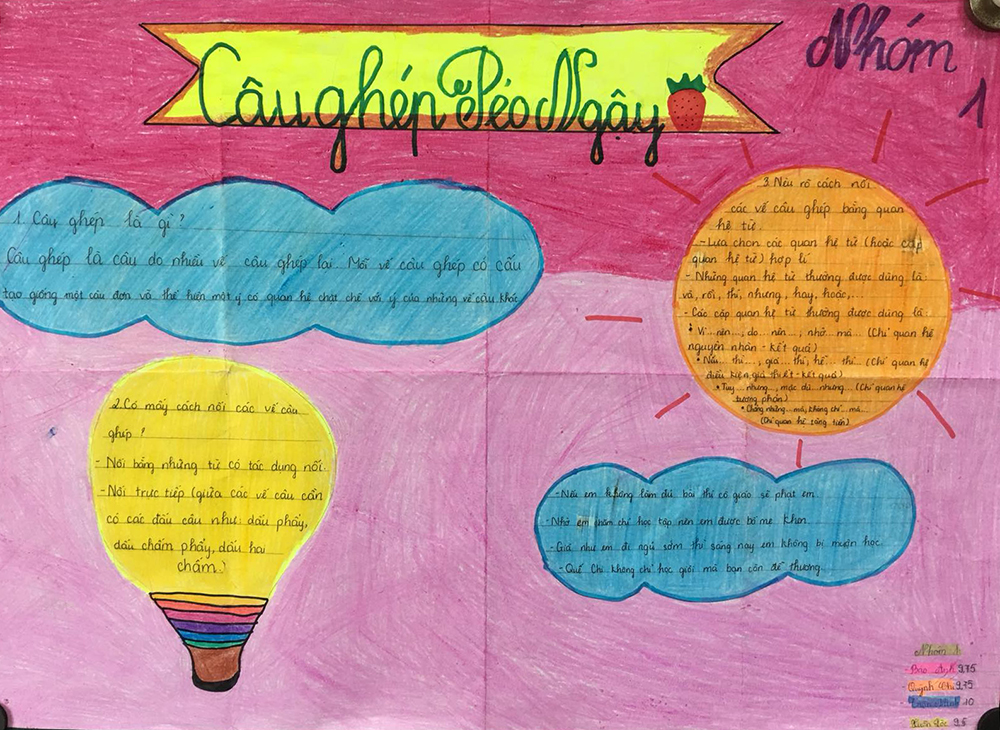 Câu ghép Béo Ngậy
Nhóm
1
1. Câu ghép là gì?
Câu ghép là câu do nhiều vế câu ghép lại. Mỗi vế câu ghép có cấu
tạo giống một câu đơn và thể hiện một ý có quan hệ chặt chẽ với ý của những vế câu khác
2. Có mấy cách nối các vế câu
ghép?
- Nối bằng những từ có tác dụng nối.
- Nối trực tiếp (giữa các vế câu cần
có các dấu câu như: dấu phẩy,
dấu chấm phẩy, dấu hai
chấm.)
3. Nêu rõ cách nối
các vế câu ghép bằng quan
hệ từ.
- Lựa chọn các quan hệ từ (hoặc cặp
quan hệ từ) hợp lí
- Những quan hệ từ thường được dùng là:
và, rồi, thì, nhưng, hay, hoặc,...
- Các cặp quan hệ từ thường được dùng là:
• Vì...nên...; do...nên...; nhờ...mà... (Chỉ quan hệ
nguyên nhân - kết quả)
• Nếu...thì...; giá...thì; hễ...thì (Chỉ quan hệ
điều kiện, giả thiết - kết quả)
• Tuy...nhưng..., mặc dù...nhưng... (Chỉ quan hệ
tương phản)
• Chẳng những...mà, không chỉ...mà...
(Chỉ quan hệ tăng tiến)
- Nếu em không làm đủ bài thì cô giáo sẽ phạt em.
- Nhờ em chăm chỉ học tập nên em được bố mẹ khen.
- Giá như em đi ngủ sớm thì sáng nay em không bị muộn học.
- Quế Chi không chỉ học giỏi mà bạn còn dễ thương.
Nhóm 1
Bảo Anh 9,75
Quỳnh Chi 9,75
10
9,5